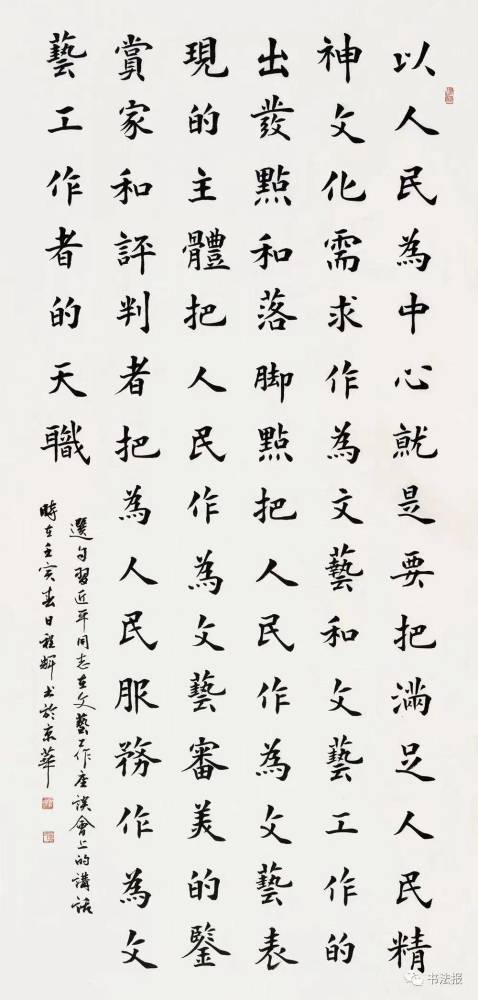 以人民為中心就是要把滿足人民精
神文化需求作為文藝和文藝工作的
出發點和落脚點把人民作為文藝表
現的主體把人民作為文藝審美的鑒
賞家和評判者把為人民服務作為文
藝工作者的天職
選句習近平同志在文藝工作座談會上的講話
時在壬寅春日程輝書於京華
书法报